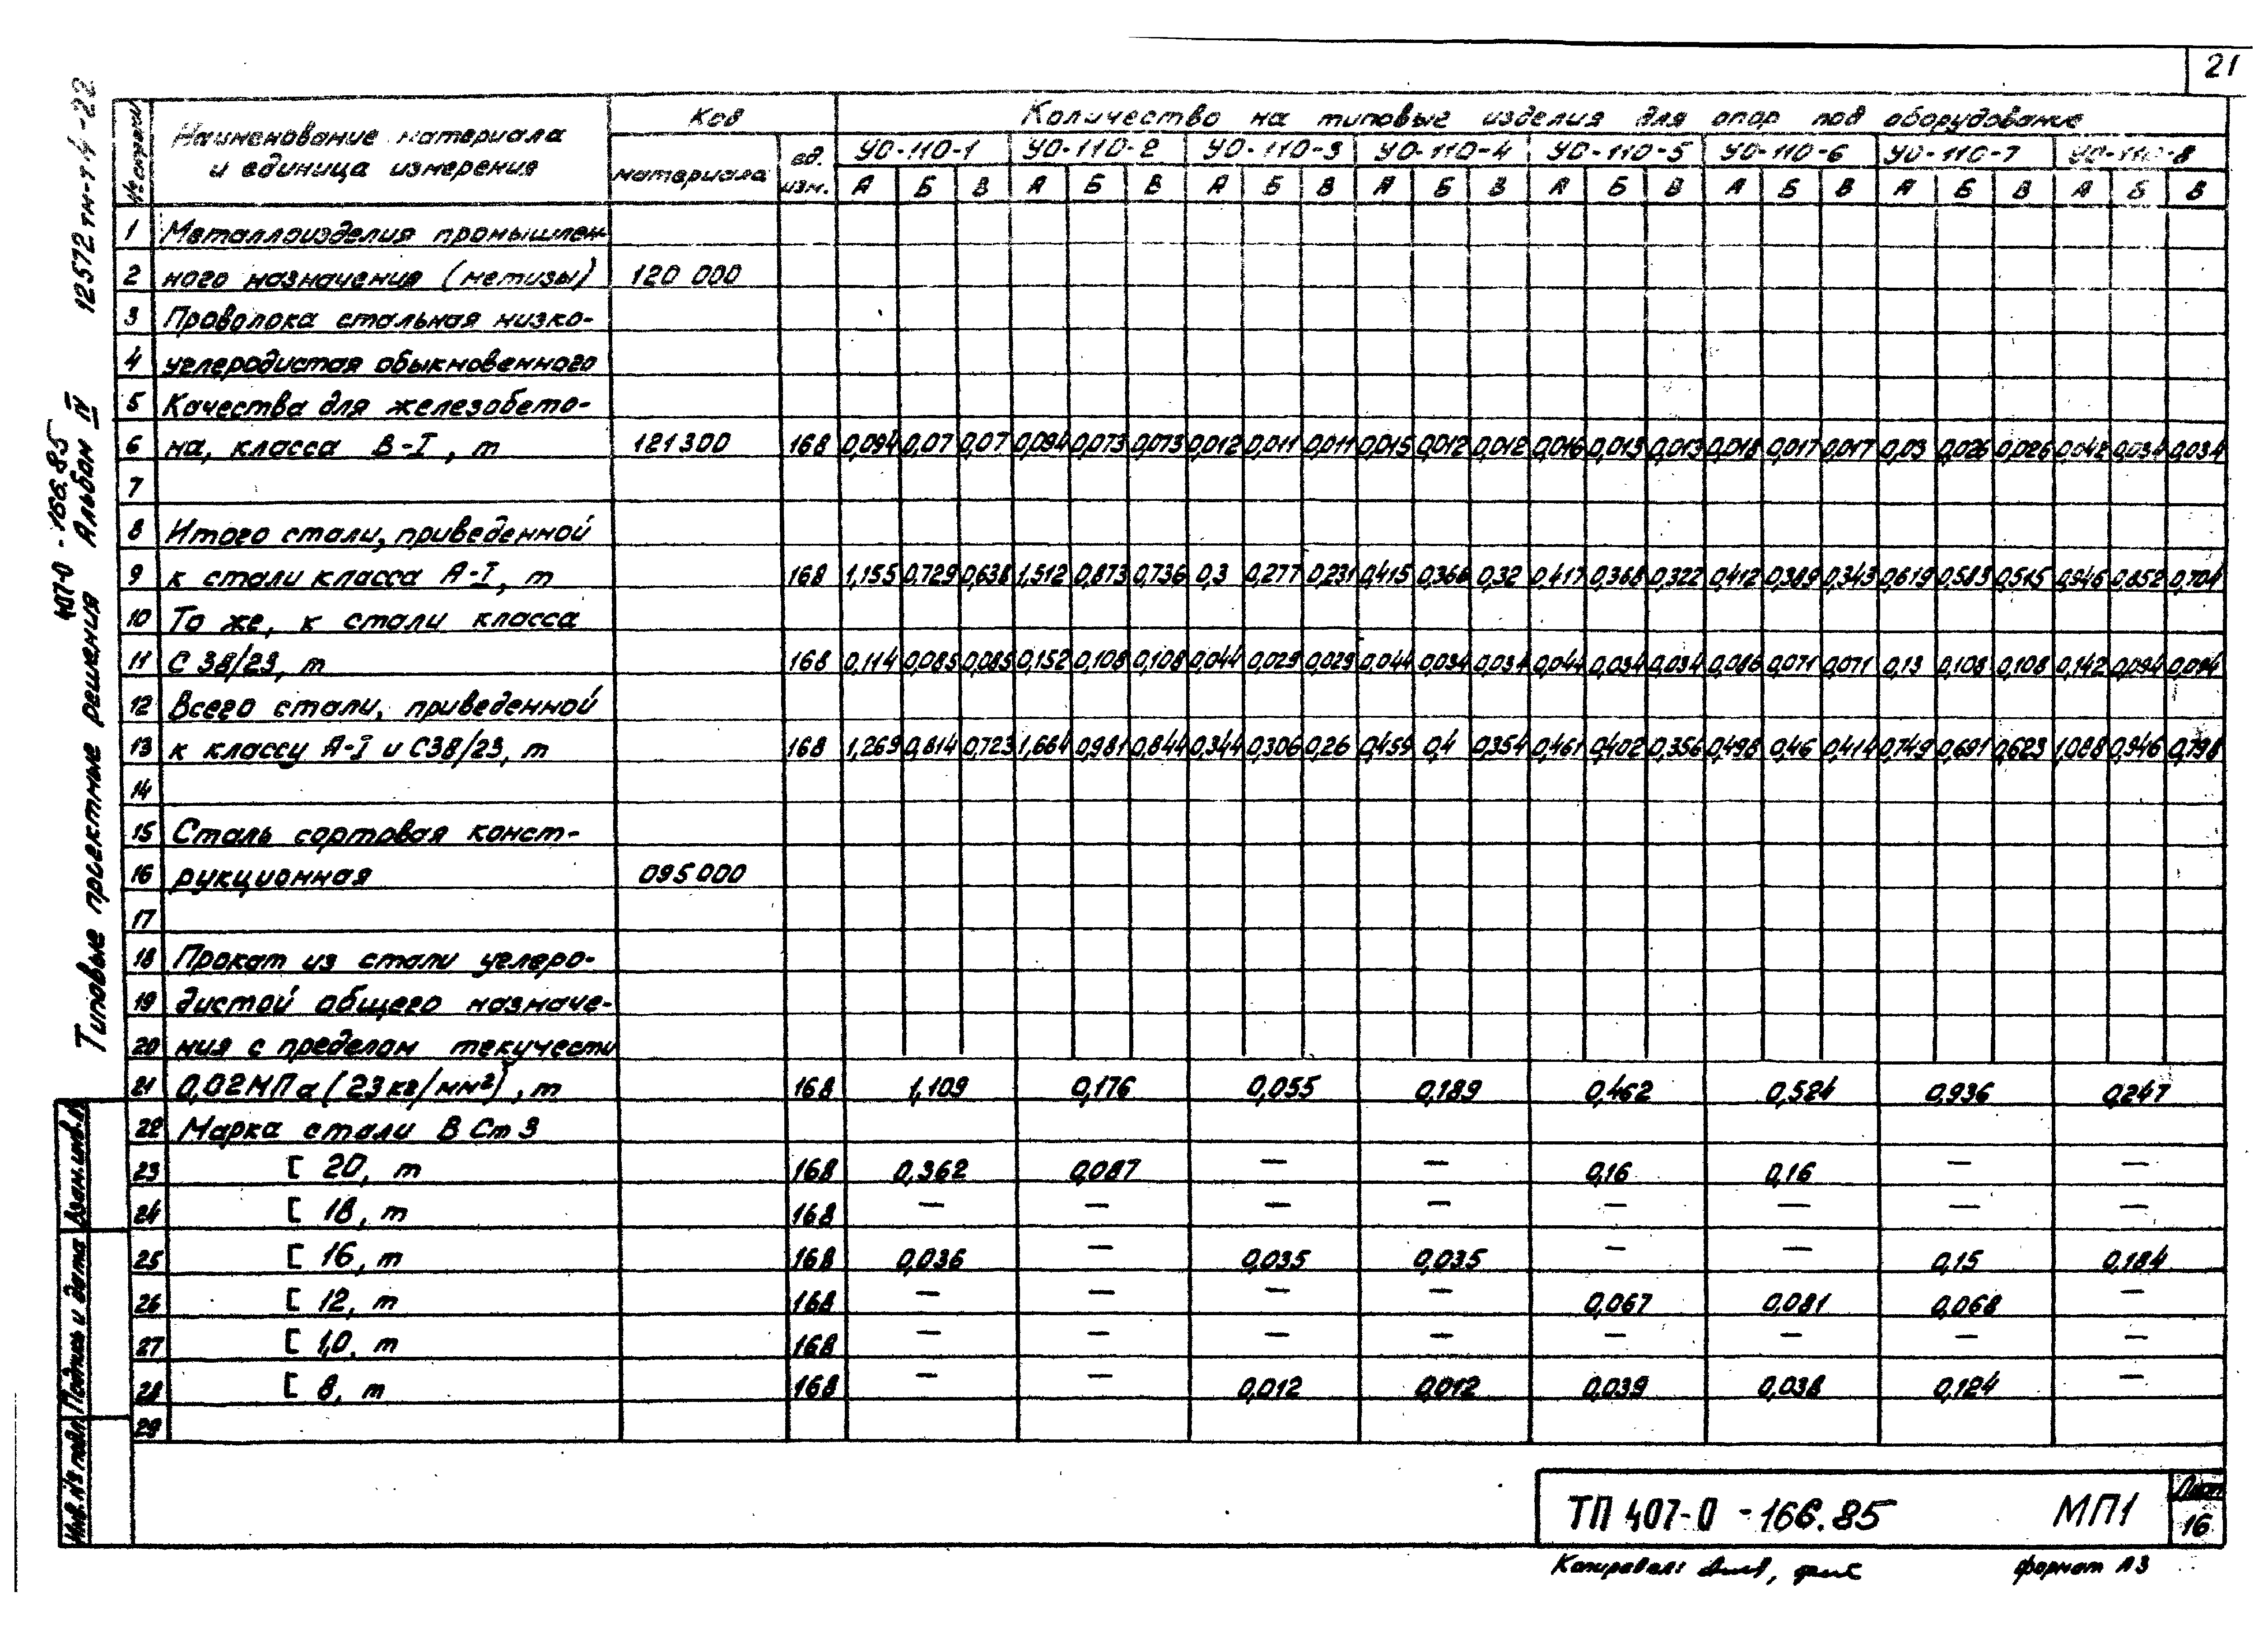 21
12572тм-т4-22
407-0-166.85
Типовые проектные решения Альбом IV
№ строки
Наименование материала
и единица измерения
Код
материала
ед. изм.
Количество на типовые изделия для опор под оборудование
УО-110-1 УО-110-2 УО-110-3 УО-110-4 УО-110-5 УО-110-6 УО-110-7 УО-110-8
А Б В А Б В А Б В А Б В А Б В А Б В А Б В А Б В
1 Металлоизделия промышлен-
2 ного назначения (метизы) 120 000
3 Проволока стальная низко-
4 углеродистая обыкновенного
5 Качества для железобето-
6 на, класса В-I, т 121300 168 0,094 0,07 0,07 0,094 0,073 0,073 0,012 0,011 0,011 0,015 0,012 0,012 0,016 0,013 0,013 0,018 0,017 0,017 0,03 0,026 0,026 0,042 0,034 0,034
7
8 Итого стали, приведенной
9 к стали класса А-I, т 168 1,155 0,729 0,638 1,512 0,873 0,736 0,3 0,277 0,231 0,415 0,366 0,32 0,417 0,368 0,322 0,412 0,389 0,343 0,619 0,583 0,515 0,946 0,852 0,704
10 То же, к стали класса
11 С 38/23, т 168 0,114 0,085 0,085 0,152 0,108 0,108 0,044 0,029 0,029 0,044 0,034 0,034 0,044 0,034 0,034 0,086 0,071 0,071 0,13 0,108 0,108 0,142 0,094 0,094
12 Всего стали, приведенной
13 к классу А-I и С38/23, т 168 1,269 0,814 0,723 1,664 0,981 0,844 0,344 0,306 0,26 0,459 0,4 0,354 0,461 0,402 0,356 0,498 0,46 0,414 0,749 0,691 0,623 1,088 0,946 0,798
14
15 Сталь сортовая конст-
16 рукционная 095000
17
18 Прокат из стали углеро-
19 дистой общего назначе-
20 ния с пределом текучести
21 0,02МПа (23кг/мм²), т 168 1,109 0,176 0,055 0,189 0,462 0,524 0,936 0,247
22 Марка стали В Ст 3
23 [ 20, т 168 0,362 0,087 — — 0,16 0,16 — —
24 [ 18, т 168 — — — — — — — —
25 [ 16, т 168 0,036 — 0,035 0,035 — — 0,15 0,184
26 [ 12, т 168 — — — — 0,067 0,081 0,068 —
27 [ 10, т 168 — — — — — — — —
28 [ 8, т 168 — — 0,012 0,012 0,039 0,038 0,124 —
29
Взам.инв.№
Подпись и дата
Инв.№ подл.
ТП 407-0-166.85 МП1
Лист
16
Копировал:
формат А3